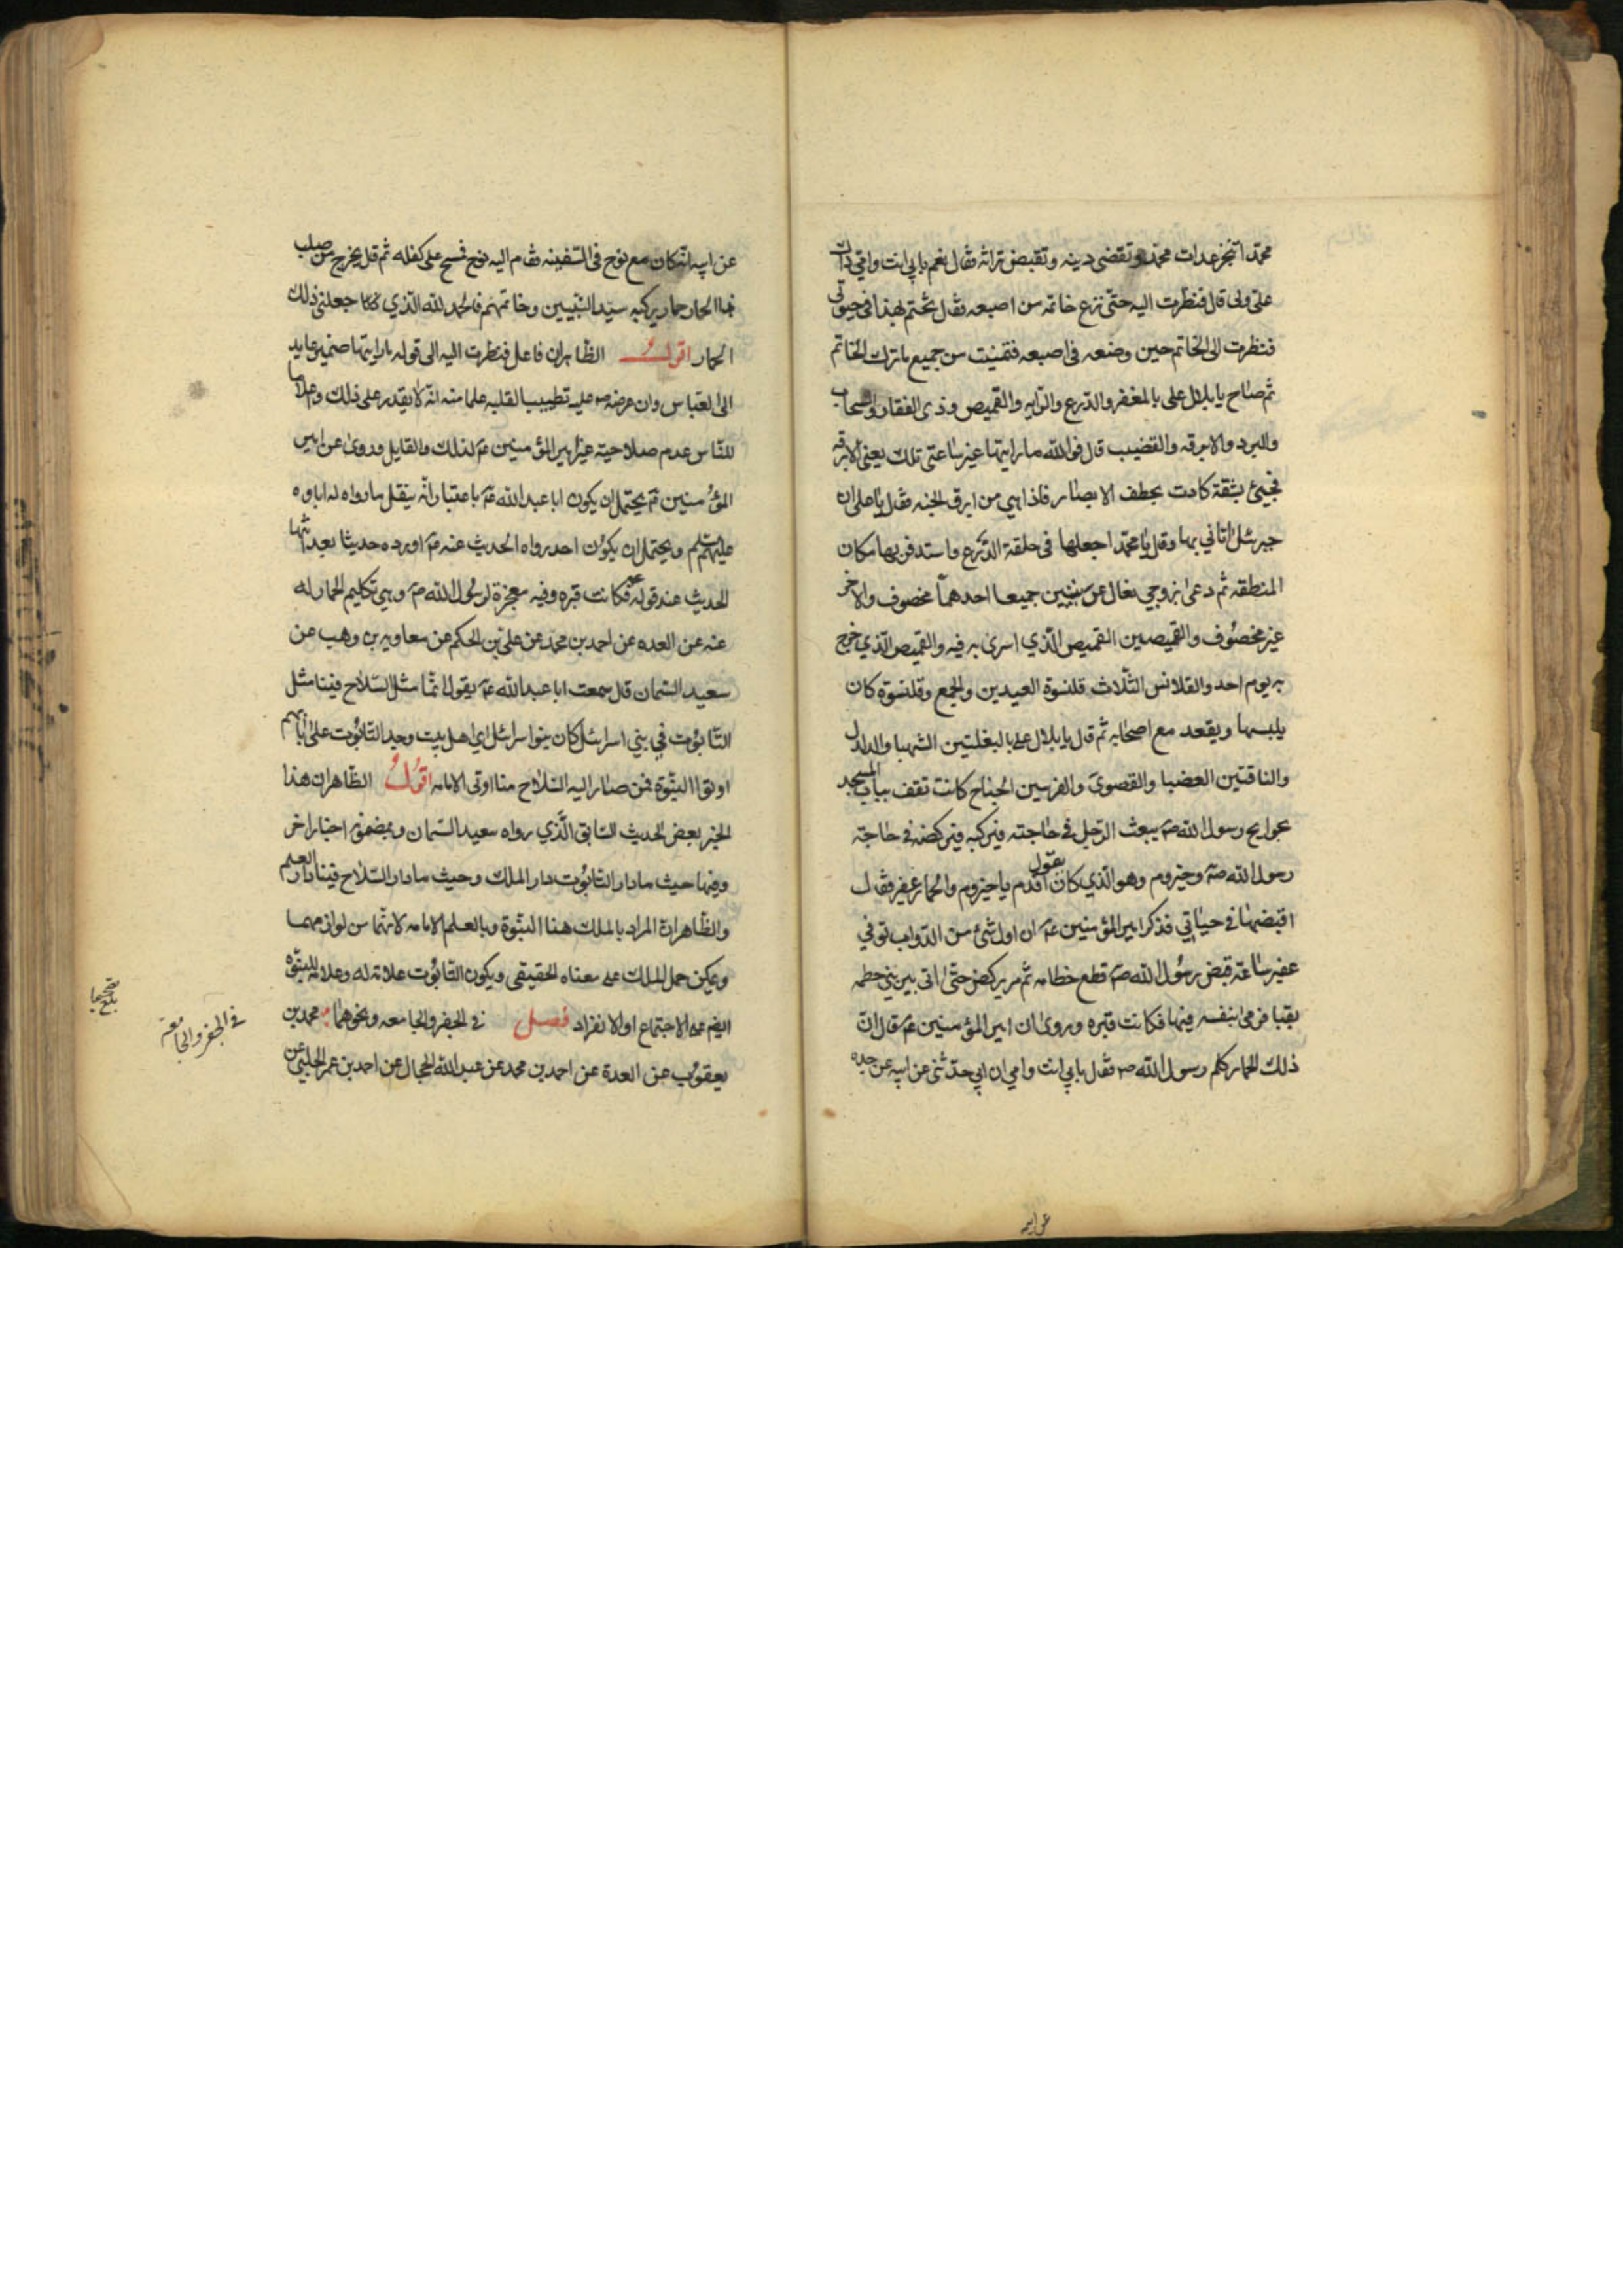 محمد اتنجز عدات محمد وتقضى دينه وتقبض تراثه فقال نعم بابي انت وامي ذاك
على ولى قال فنظرت اليه حتى نزع خاتمه من اصبعه فقال تختم بهذا في حيوتى
فنظرت الى الخاتم حين وضعه فى اصبعه فتمنيت من جميع ماترك الخاتم
ثم صاح يا بلال على بالمغفر والدرع والرايه والقميص وذى الفقار والسحاب
والبرد والابرقه والقضيب قال فوالله ما رايتها غير ساعتى تلك يعنى الابرقه
فجيئ بشقة كادت يخطف الابصار فاذا هي من ابرق الجنه فقال يا على ان
جبرئيل اتاني بها وقال يا محمد اجعلها فى حلقة الدرع واستدفر بها مكان
المنطقه ثم دعى بزوجي نعال عربيين جميعا احدهما مخصوف والاخر
غير مخصوف والقميصين القميص الذي اسرى به فيه والقميص الذي خرج
به يوم احد والقلانس الثلاث قلنسوة العيدين والجمع وقلنسوة كان
يلبسها ويقعد مع اصحابه ثم قال يا بلال على بالبغلتين الشهبا والدلدل
والناقتين العضبا والقصوى والفرسين الجناح كانت تقف بباب المسجد
بحوايج رسول الله ص يبعث الرجل في حاجته فيركبه فيركضه في حاجة
رسول الله ص وحيزوم وهو الذي كان يقول اقدم يا حيزوم والحمار عفير فقال
اقبضها في حياتي فذكر امير المؤمنين ع ان اول شئ من الدواب توفي
عفير ساعة قبض رسول الله ص قطع خطامه ثم مر يركض حتى اتى بير بني حطمه
بقبا فرمى بنفسه فيها فكانت قبره وروى ان امير المؤمنين ع قال ان
ذلك الحمار كلم رسول الله ص فقال بابي انت وامي ان ابي حدثنى عن ابيه عن جده
عن ابيه انه كان مع نوح فى السفينه فقام اليه نوح فمسح على كفله ثم قال يخرج من صلب
هذا الحمار حمار يركبه سيد النبيين وخاتمهم فالحمد لله الذي جعلنى ذلك
الحمار اقول الظاهر ان فاعل فنظرت اليه الى قوله ما رايتها ضمير عايد
الى العباس وان عرضه ص عليه تطييبا لقلبه علما منه انه لا يقدر على ذلك واعلاما
للناس عدم صلاحية غير امير المؤمنين ع لذلك والقايل وروى عن امير
المؤمنين ع يحتمل ان يكون ابا عبد الله ع باعتبار انه ينقل ما رواه له اباوه
عليهم السلم ويحتمل ان يكون احد رواه الحديث عنه ع اورده حديثا بعد انتها
الحديث عند قوله ع فكانت قبره وفيه معجزة لرسول الله ص وهي تكليم الحمار له
عنه عن العده عن احمد بن محمد عن على بن الحكم عن معاوية بن وهب عن
سعيد السمان قال سمعت ابا عبد الله ع يقول انما مثل السلاح فينا مثل
التابوت في بني اسرائيل كان بنو اسرائيل اي اهل بيت وجد التابوت على بابهم
اوتوا النبوة فمن صار اليه السلاح منا اوتى الامامه اقول الظاهر ان هذا
الخبر بعض الحديث السابق الذي رواه سعيد السمان وبمضمونه اخبار اخر
وفيها حيث ما دار التابوت دار الملك وحيث ما دار السلاح فينا دار العلم
والظاهر ان المراد بالملك هنا النبوة وبالعلم الامامه لانهما من لوازمهما
ويمكن حمل الملك على معناه الحقيقى ويكون التابوت علامة له وعلامه للنبوه
ايضا على الاجتماع او الانفراد فصل في الجفر والجامعه ونحوهما محمد بن
يعقوب عن العدة عن احمد بن محمد عن عبد الله الحجال عن احمد بن عمر الحلبي عن
في الجفر والجامعة